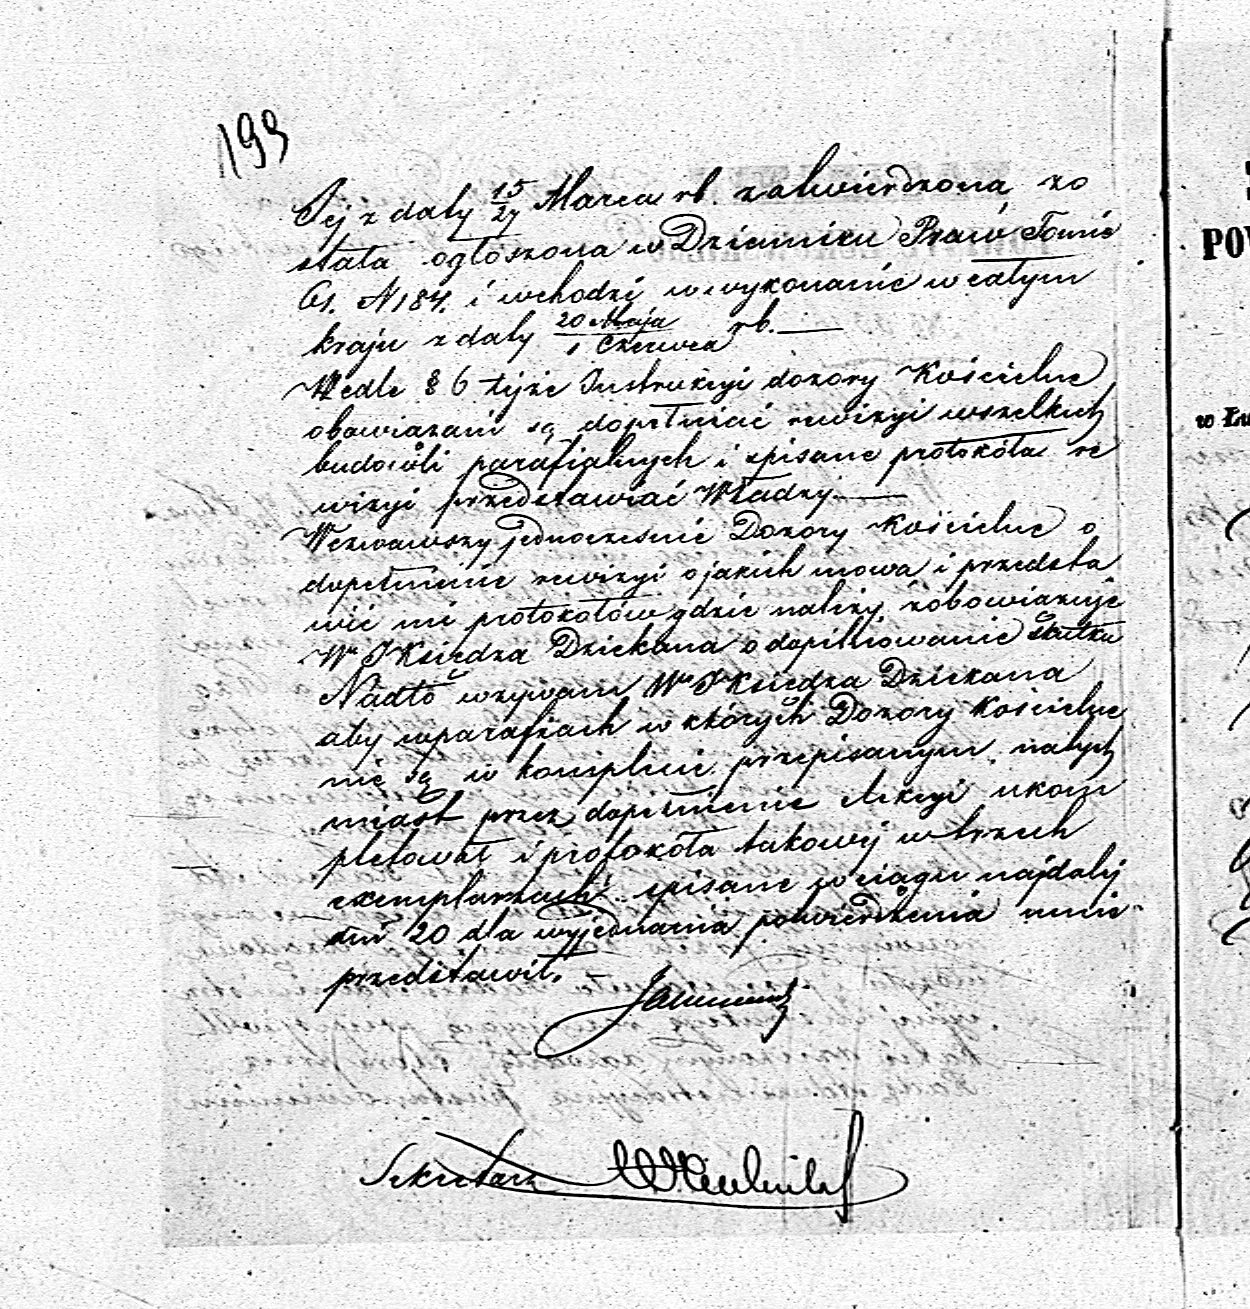 193
Jej z daty 15/27 Marca rb. zatwierdzona zo
stała ogłoszona w Dzienniku Praw Tomie
61. N 184. i wchodzi w wykonanie w całym
kraju z daty 20 Maja/1 Czerwca rb.
Wedle § 6 tejże Instrukcyi dozory Kościelne
obowiązani są dopełniać rewizyi wszelkich
budowli parafialnych i spisane protokóła re
wizyi przedstawiać Władzy.
Wezwawszy jednocześnie Dozory Kościelne o
dopełnienie rewizyi o jakich mowa i przedsta
wienie protokołów gdzie należy, zobowiązuję
W JXiędza Dziekana o dopilnowanie skutku
Nadto wzywam W JXiędza Dziekana
aby w parafiach w których Dozory Kościelne
nie są w komplecie przepisanym, natych
miast przez dopełnienie elekcyi ukom
pletował i protokóła takowej w trzech
exemplarzach spisane w ciągu najdalej
dni 20 dla wyjednania potwierdzenia mnie
przedstawił.
Sekretarz
POW
w Łu